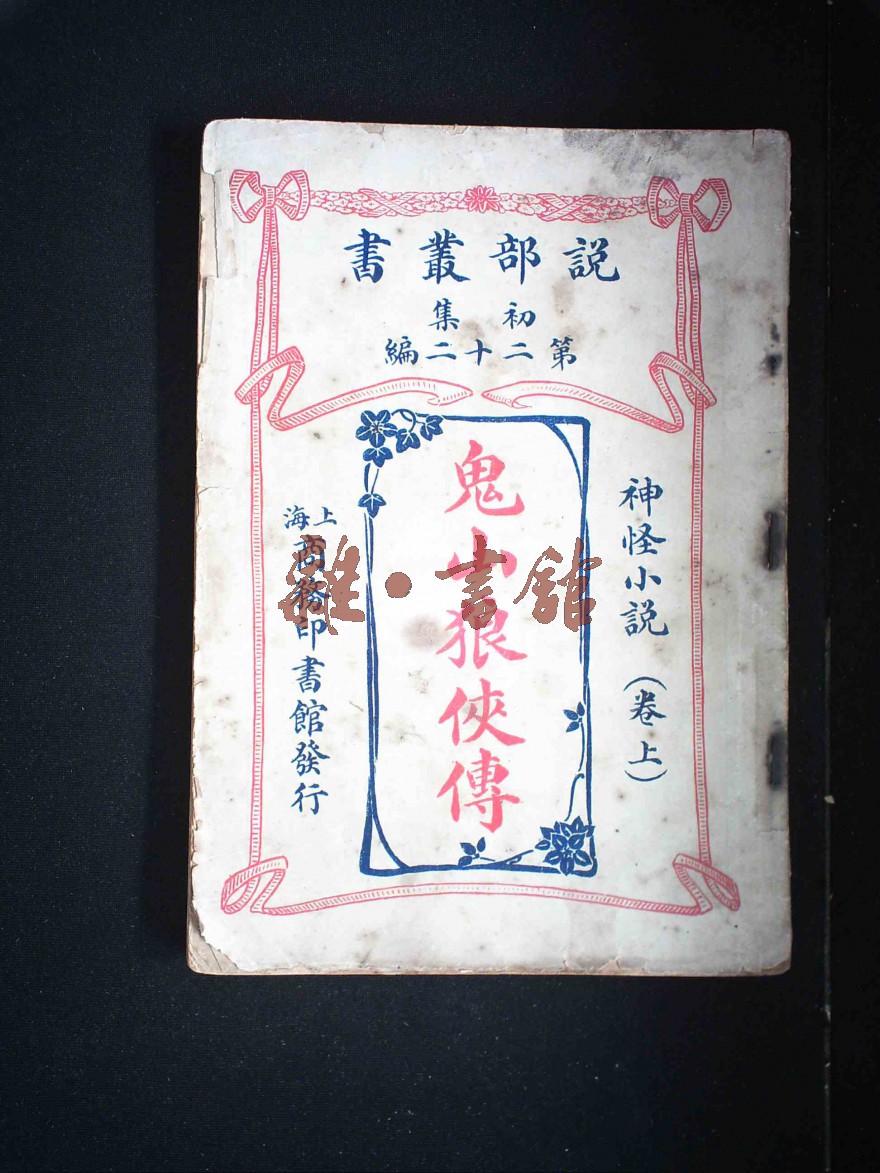 説部叢書
初集
第二十二編
神怪小説（卷上）
鬼山狼俠傳
上海
商務印書館發行
雜·書館